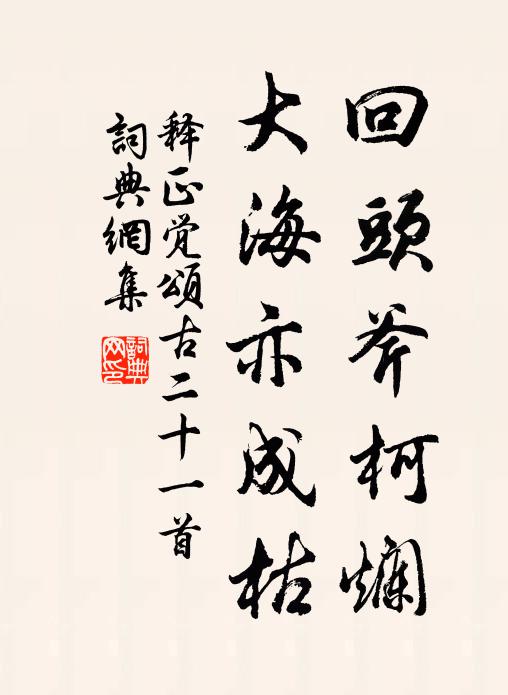 回頭斧柯爛
大海亦成枯
释正觉頌古二十一首
詞典網集
詞典网印